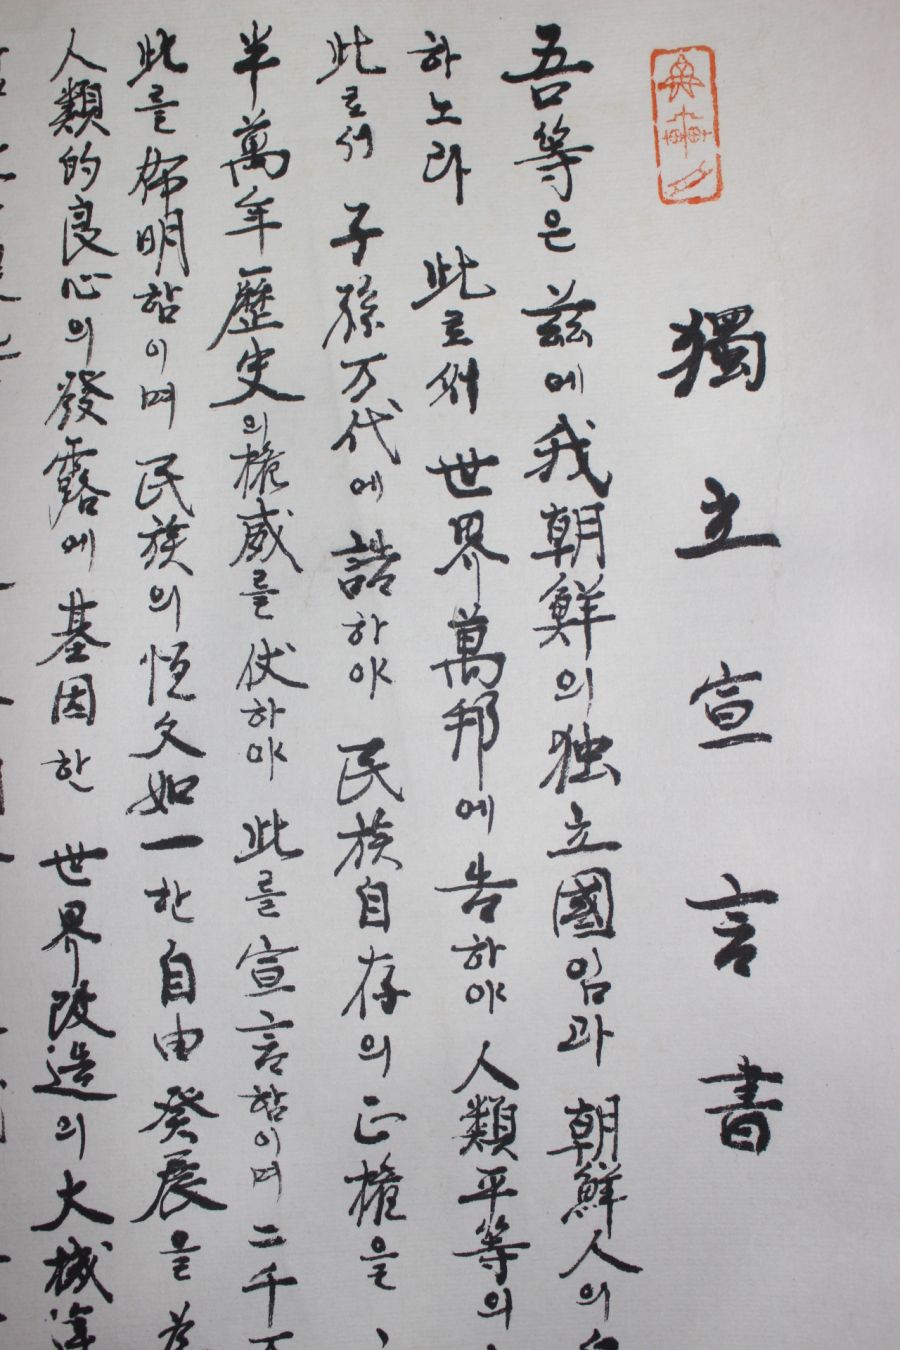 獨立宣言書
吾等은 玆에 我朝鮮의 独立國임과 朝鮮人의
하노라 此로써 世界萬邦에 告하야 人類平等의
此로써 子孫万代에 誥하야 民族自存의 正權을
半萬年歷史의 權威를 仗하야 此를 宣言함이며 二千万
此를 佈明함이며 民族의 恒久如一한 自由發展을 爲
人類的良心의 發露에 基因한 世界改造의 大機運